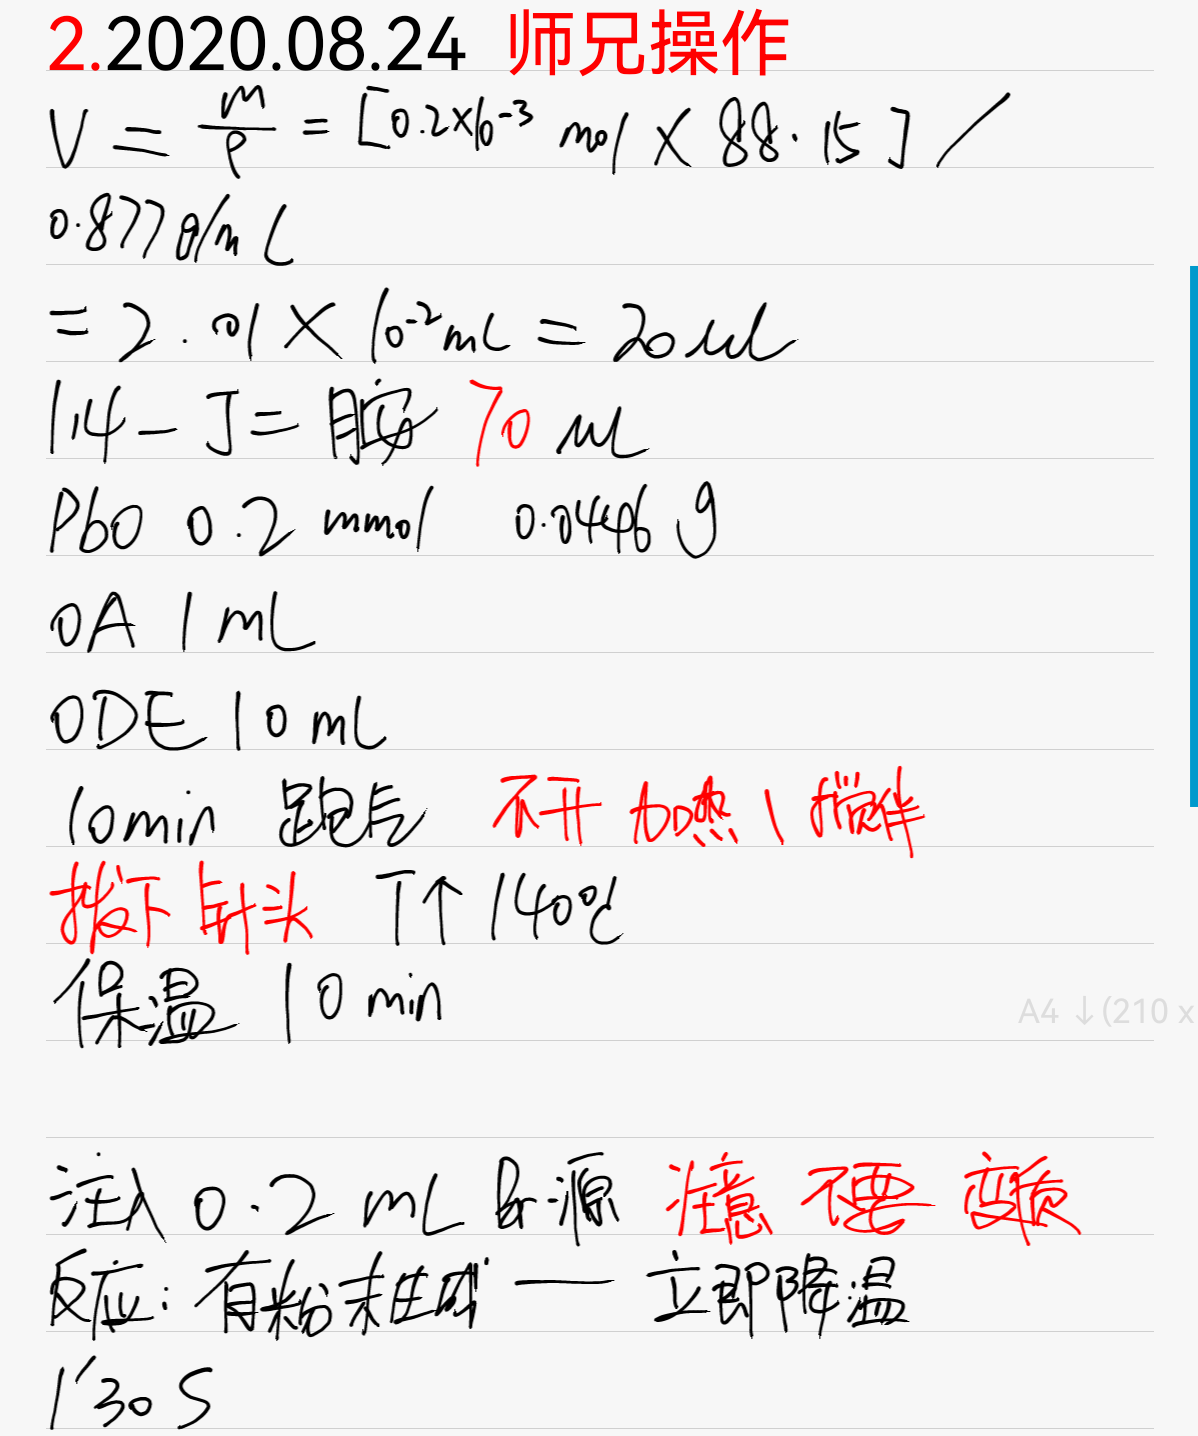 2.2020.08.24 师兄操作
V = m/ρ = [0.2×10⁻³ mol × 88.15] /
0.877 g/mL
= 2.01 × 10⁻² mL = 20 μL
1,4-丁二胺 70 μL
PbO 0.2 mmol 0.0446 g
OA 1 mL
ODE 10 mL
10min 跑气 不开加热\搅拌
拔下针头 T↑ 140℃
保温 10 min
A4 ↓(210 x
注入 0.2 mL Br源 注意 不要 变质
反应: 有粉末生成 — 立即降温
1′30 S